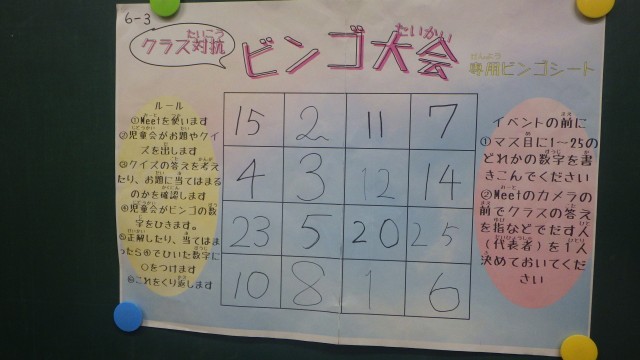 6-3
クラス対抗
たいこう
ビンゴ大会
たいかい
専用ビンゴシート
せんよう
ルール
①Meetを使います
②児童会がお題やクイ
ズを出します
③クイズの答えを考え
たり、お題に当てはまる
のかを確認します
④児童会がビンゴの数
字をひきます。
⑤正解したり、当てはま
ったら④でひいた数字に
○をつけます
⑥これをくり返します
15 2 11 7
4 3 12 14
23 5 20 25
10 8 1 6
イベントの前に
①マス目に1～25の
どれかの数字を書
きこんでください
②Meetのカメラの
前でクラスの答え
を指などでだす人
（代表者）を1人
決めておいてくだ
さい